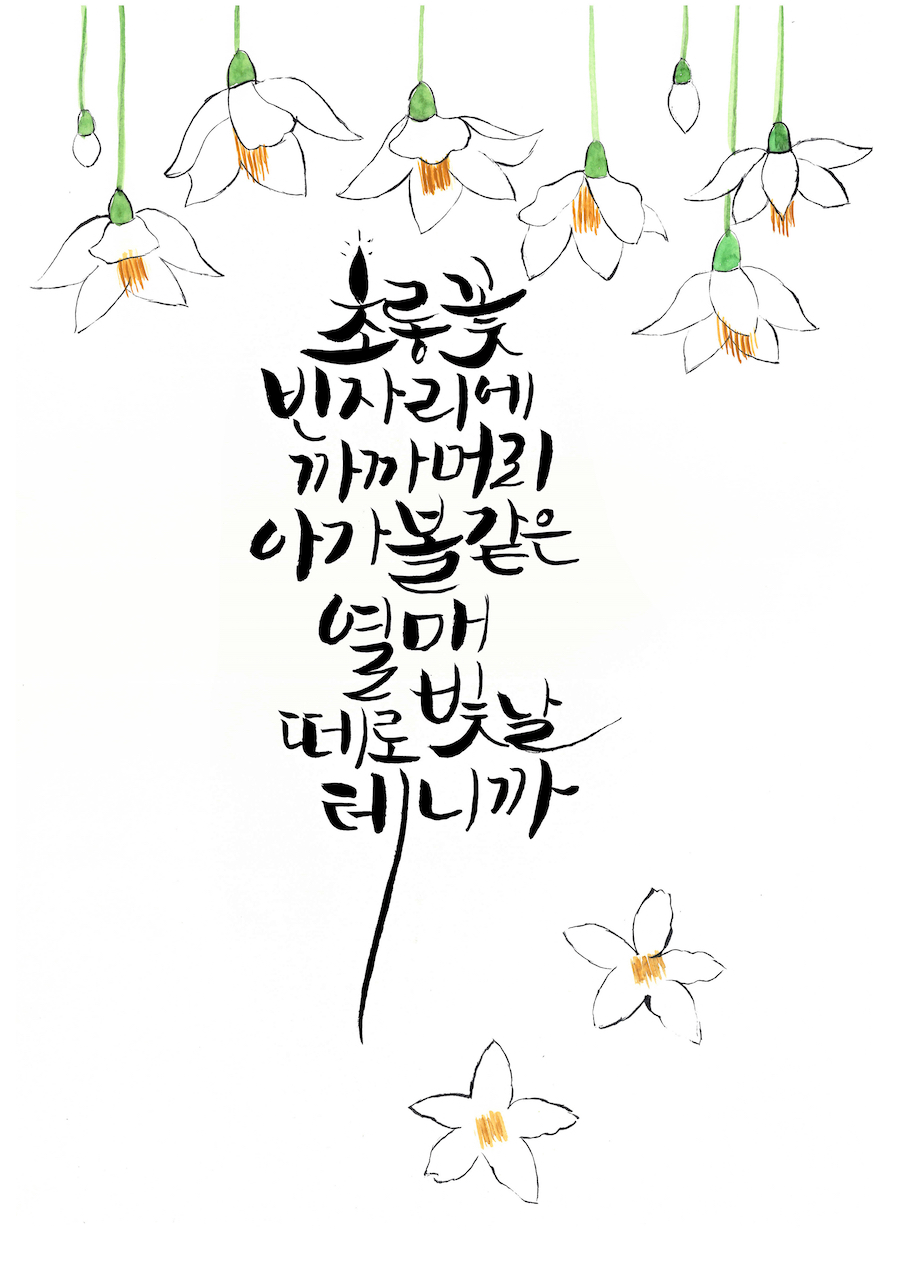 초롱꽃
빈자리에
까까머리
아가볼같은
열매
떼로 빛날
테니까